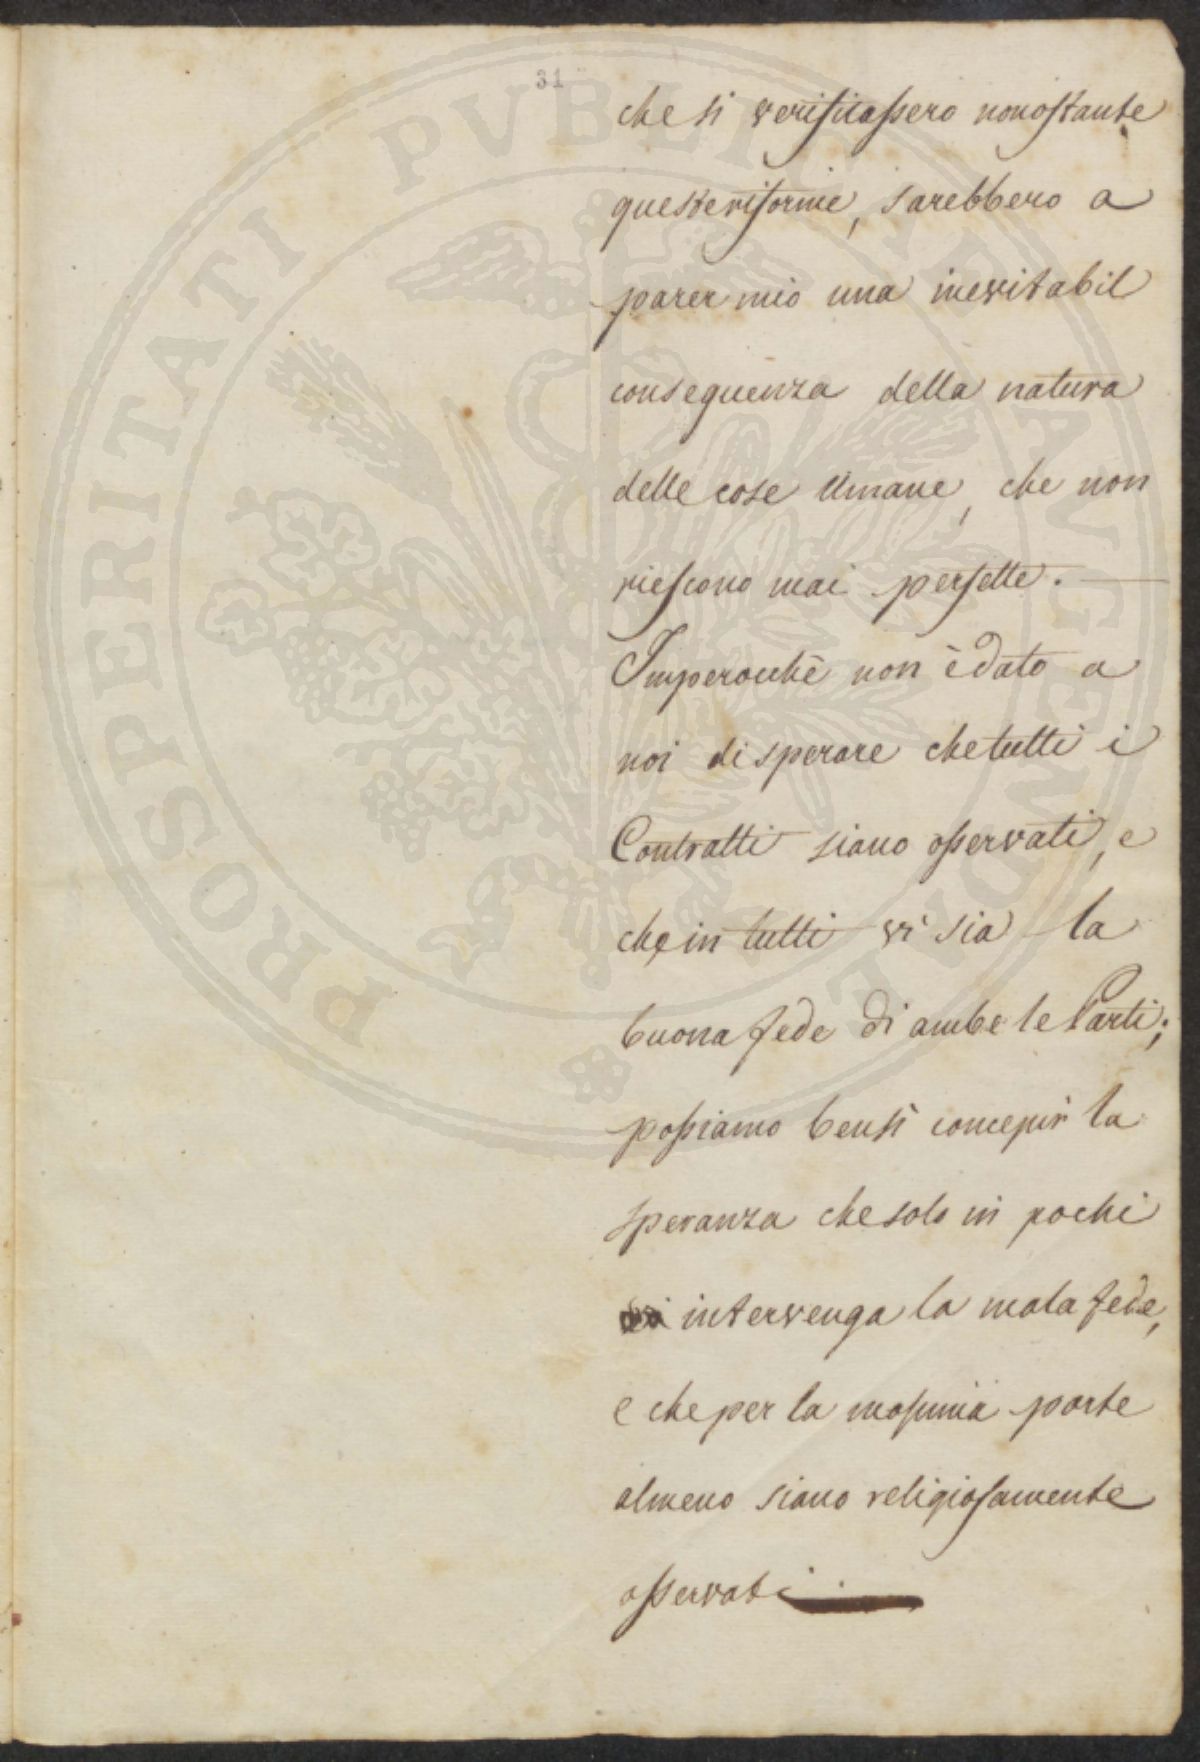 31
che si verificassero nonostante
queste riforme, sarebbero a
parer mio una inevitabil
conseguenza della natura
delle cose Umane, che non
riescono mai perfette.
Imperocchè non è dato a
noi di sperare che tutti i
Contratti siano osservati, e
che in tutti vi sia la
buona fede di ambe le Parti;
possiamo bensì concepir la
speranza che solo in pochi
intervenga la mala fede,
e che per la massima parte
almeno siano religiosamente
osservati.
PROSPERITATI PVBLICAE AVGENDAE